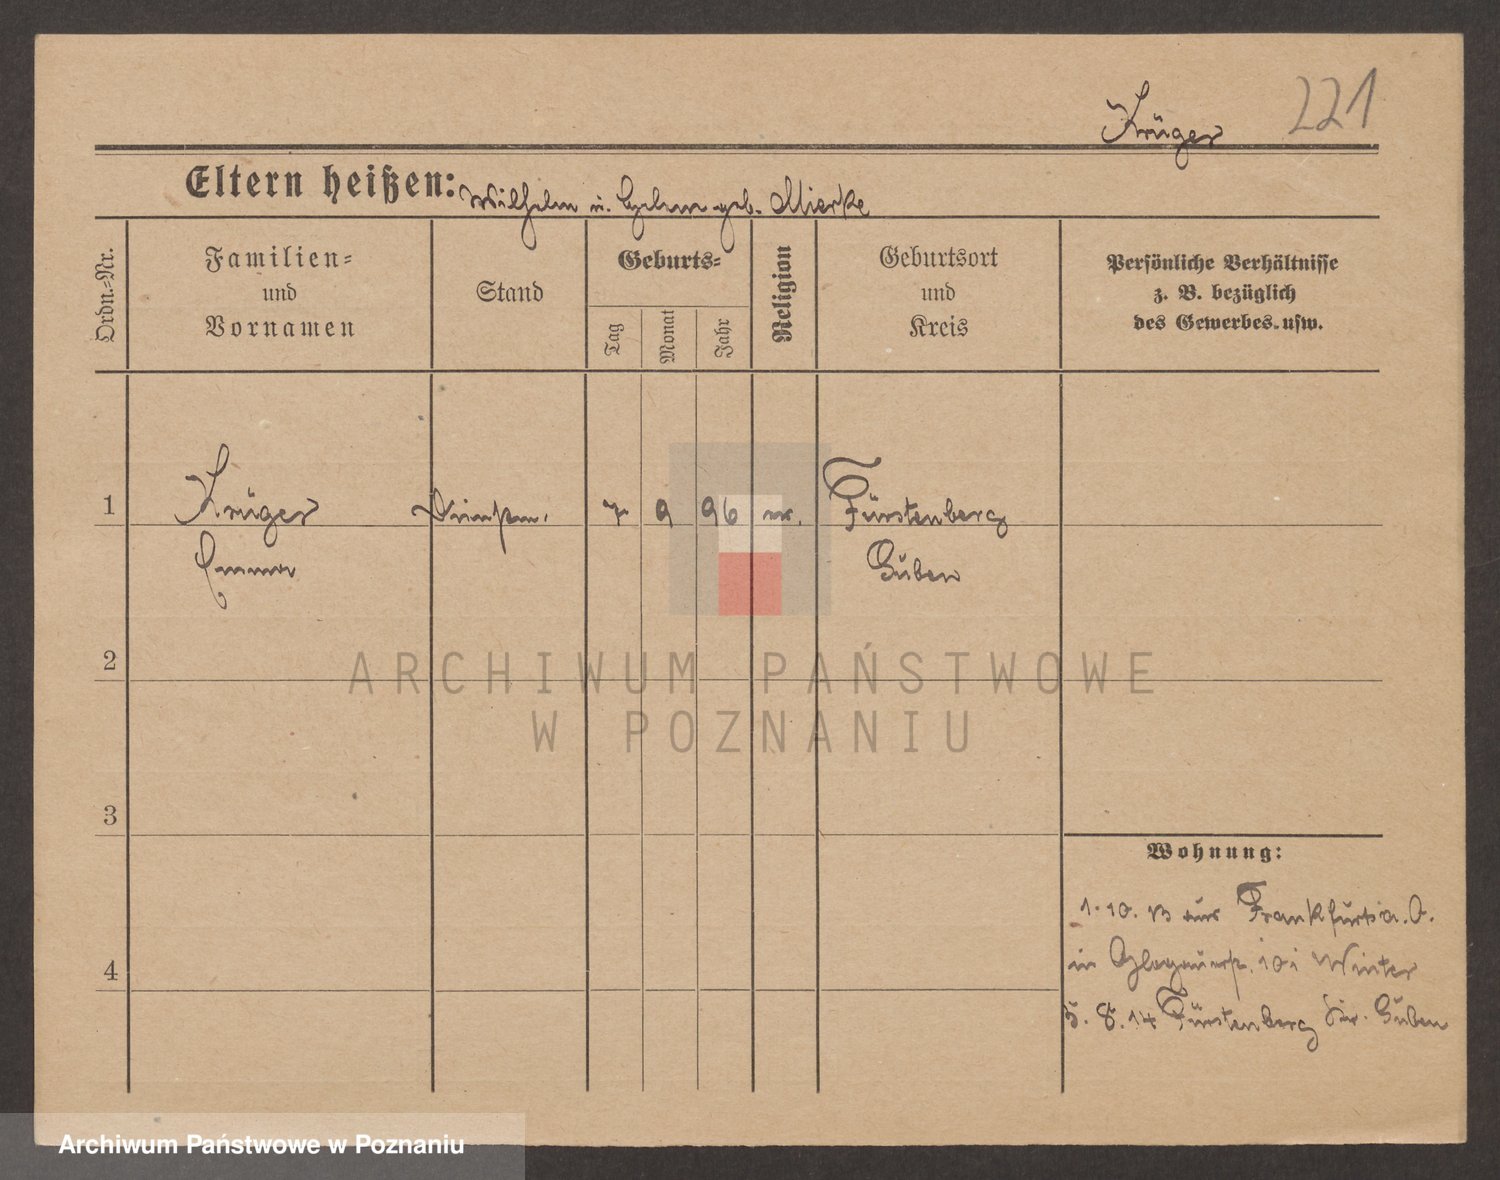 Krüger 221
Eltern heißen: Wilhelm u. geb. Mierke
Ordn.-Nr.
Familien-
und
Vornamen
Stand
Geburts-
Tag
Monat
Jahr
Religion
Geburtsort
und
Kreis
Persönliche Verhältnisse
z. B. bezüglich
des Gewerbes usw.
1 Krüger 7 9 96 Fürstenberg
Emma Guben
2
3
4
Wohnung:
1. 10. 13 aus Frankfurt a. O.
in Glogauerstr. 10 Winter
5. 8. 14 Fürstenberg Kr. Guben
ARCHIWUM PAŃSTWOWE
W POZNANIU
Archiwum Państwowe w Poznaniu